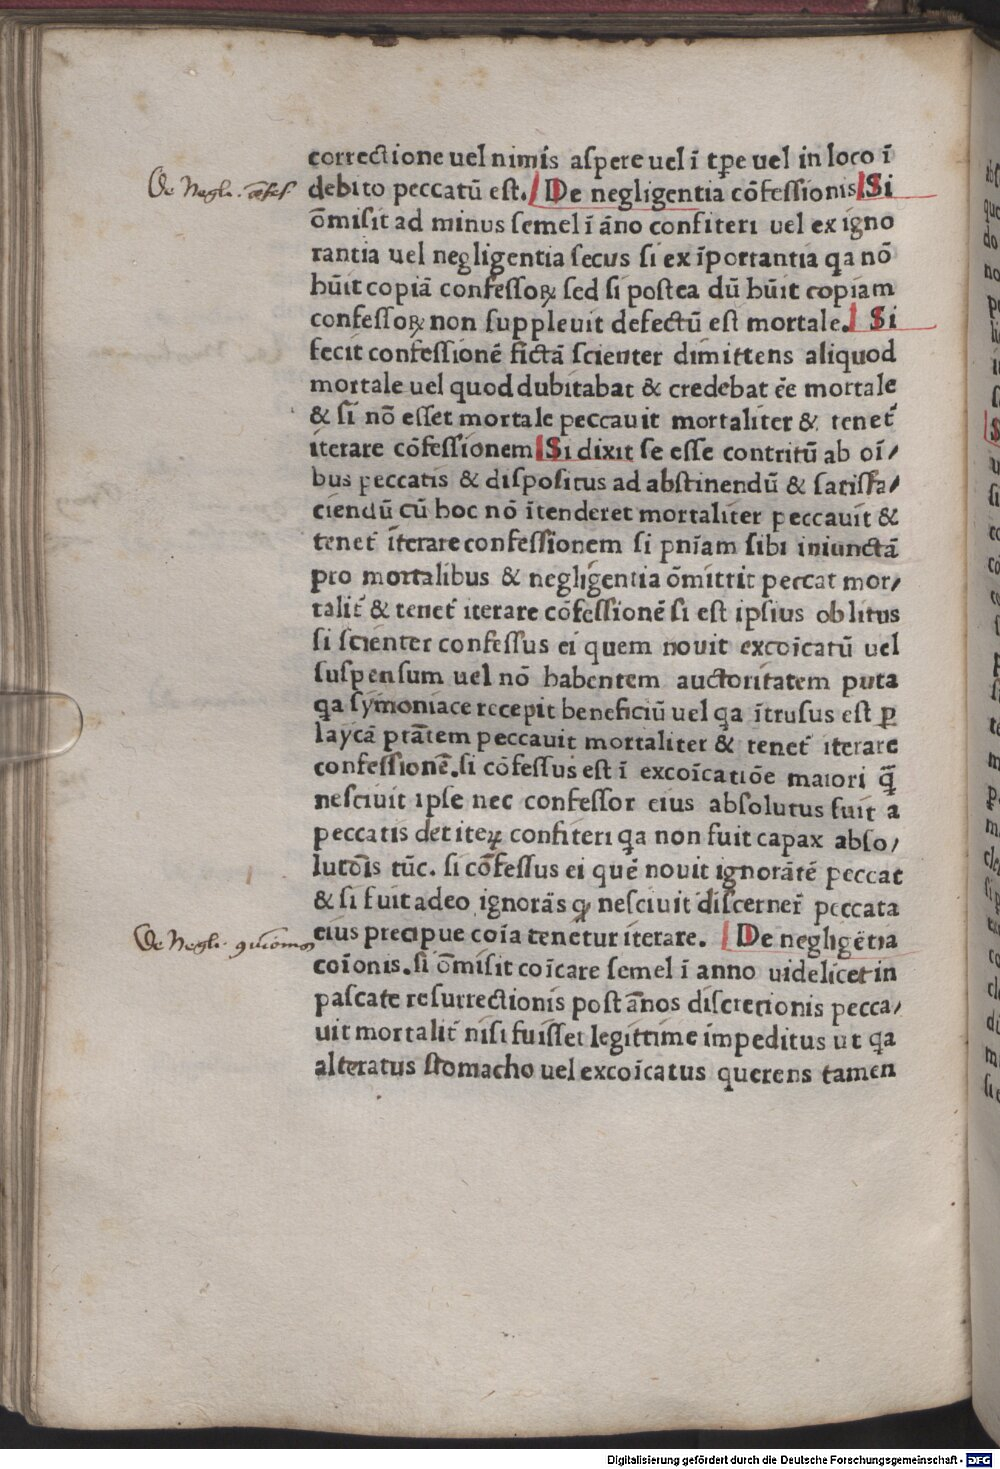 correctione uel nimis aſpere uel ī tꝑe uel in loco ī
De Negle. ꝯfeſ
debito peccatū eſt. De negligentia cōfeſſionis Si
ōmiſit ad minus ſemel ī āno confiteri uel ex igno
rantia uel negligentia ſecus ſi ex īportantia qa nō
hūit copiā confeſſoꝝ ſed ſi poſtea dū hūit copiam
confeſſoꝝ non ſuppleuit defectū eſt mortale. Si
fecit confeſſionē fictā ſcienter dimittens aliquod
mortale uel quod dubitabat & credebat ēe mortale
& ſi nō eſſet mortale peccauit mortaliter & tenet᷑
iterare cōfeſſionem Si dixit ſe eſſe contritū ab oī/
bus peccatis & diſpoſitus ad abſtinendū & ſatiſfa/
ciendū cū hoc nō ītenderet mortaliter peccauit &
tenet᷑ īterare confeſſionem ſi pnīam ſibi iniunctā
pro mortalibus & negligentia ōmittit peccat mor/
talit᷑ & tenet᷑ iterare cōfeſſionē ſi eſt ipſius oblitus
ſi ſcienter confeſſus ei quem nouit excoīcatū uel
ſuſpenſum uel nō habentem auctoritatem puta
qa ſymoniace recepit beneficiū uel qa ītruſus eſt ꝑ
laycā ptātem peccauit mortaliter & tenet᷑ iterare
confeſſionē. ſi cōfeſſus eſt ī excoīcatiōe maiori q̄
neſciuit ipſe nec confeſſor eius abſolutus fuit a
peccatis det iteꝝ confiteri qa non fuit capax abſo/
lutōis tūc. ſi cōfeſſus ei quē nouit ignorātē peccat
& ſi fuit adeo ignorās ꝙ neſciuit diſcerner̄ peccata
eius precipue coīa tenetur iterare. De negligētia
De Negle. ꝯuīomō
coīonis. ſi ōmiſit coīcare ſemel ī anno uidelicet in
paſcate reſurrectionis poſt ānos diſcretionis pecca/
uit mortalit᷑ niſi fuiſſet legittime impeditus ut qa
alteratus ſtomacho uel excoīcatus querens tamen
Digitalisierung gefördert durch die Deutsche Forschungsgemeinschaft - DFG